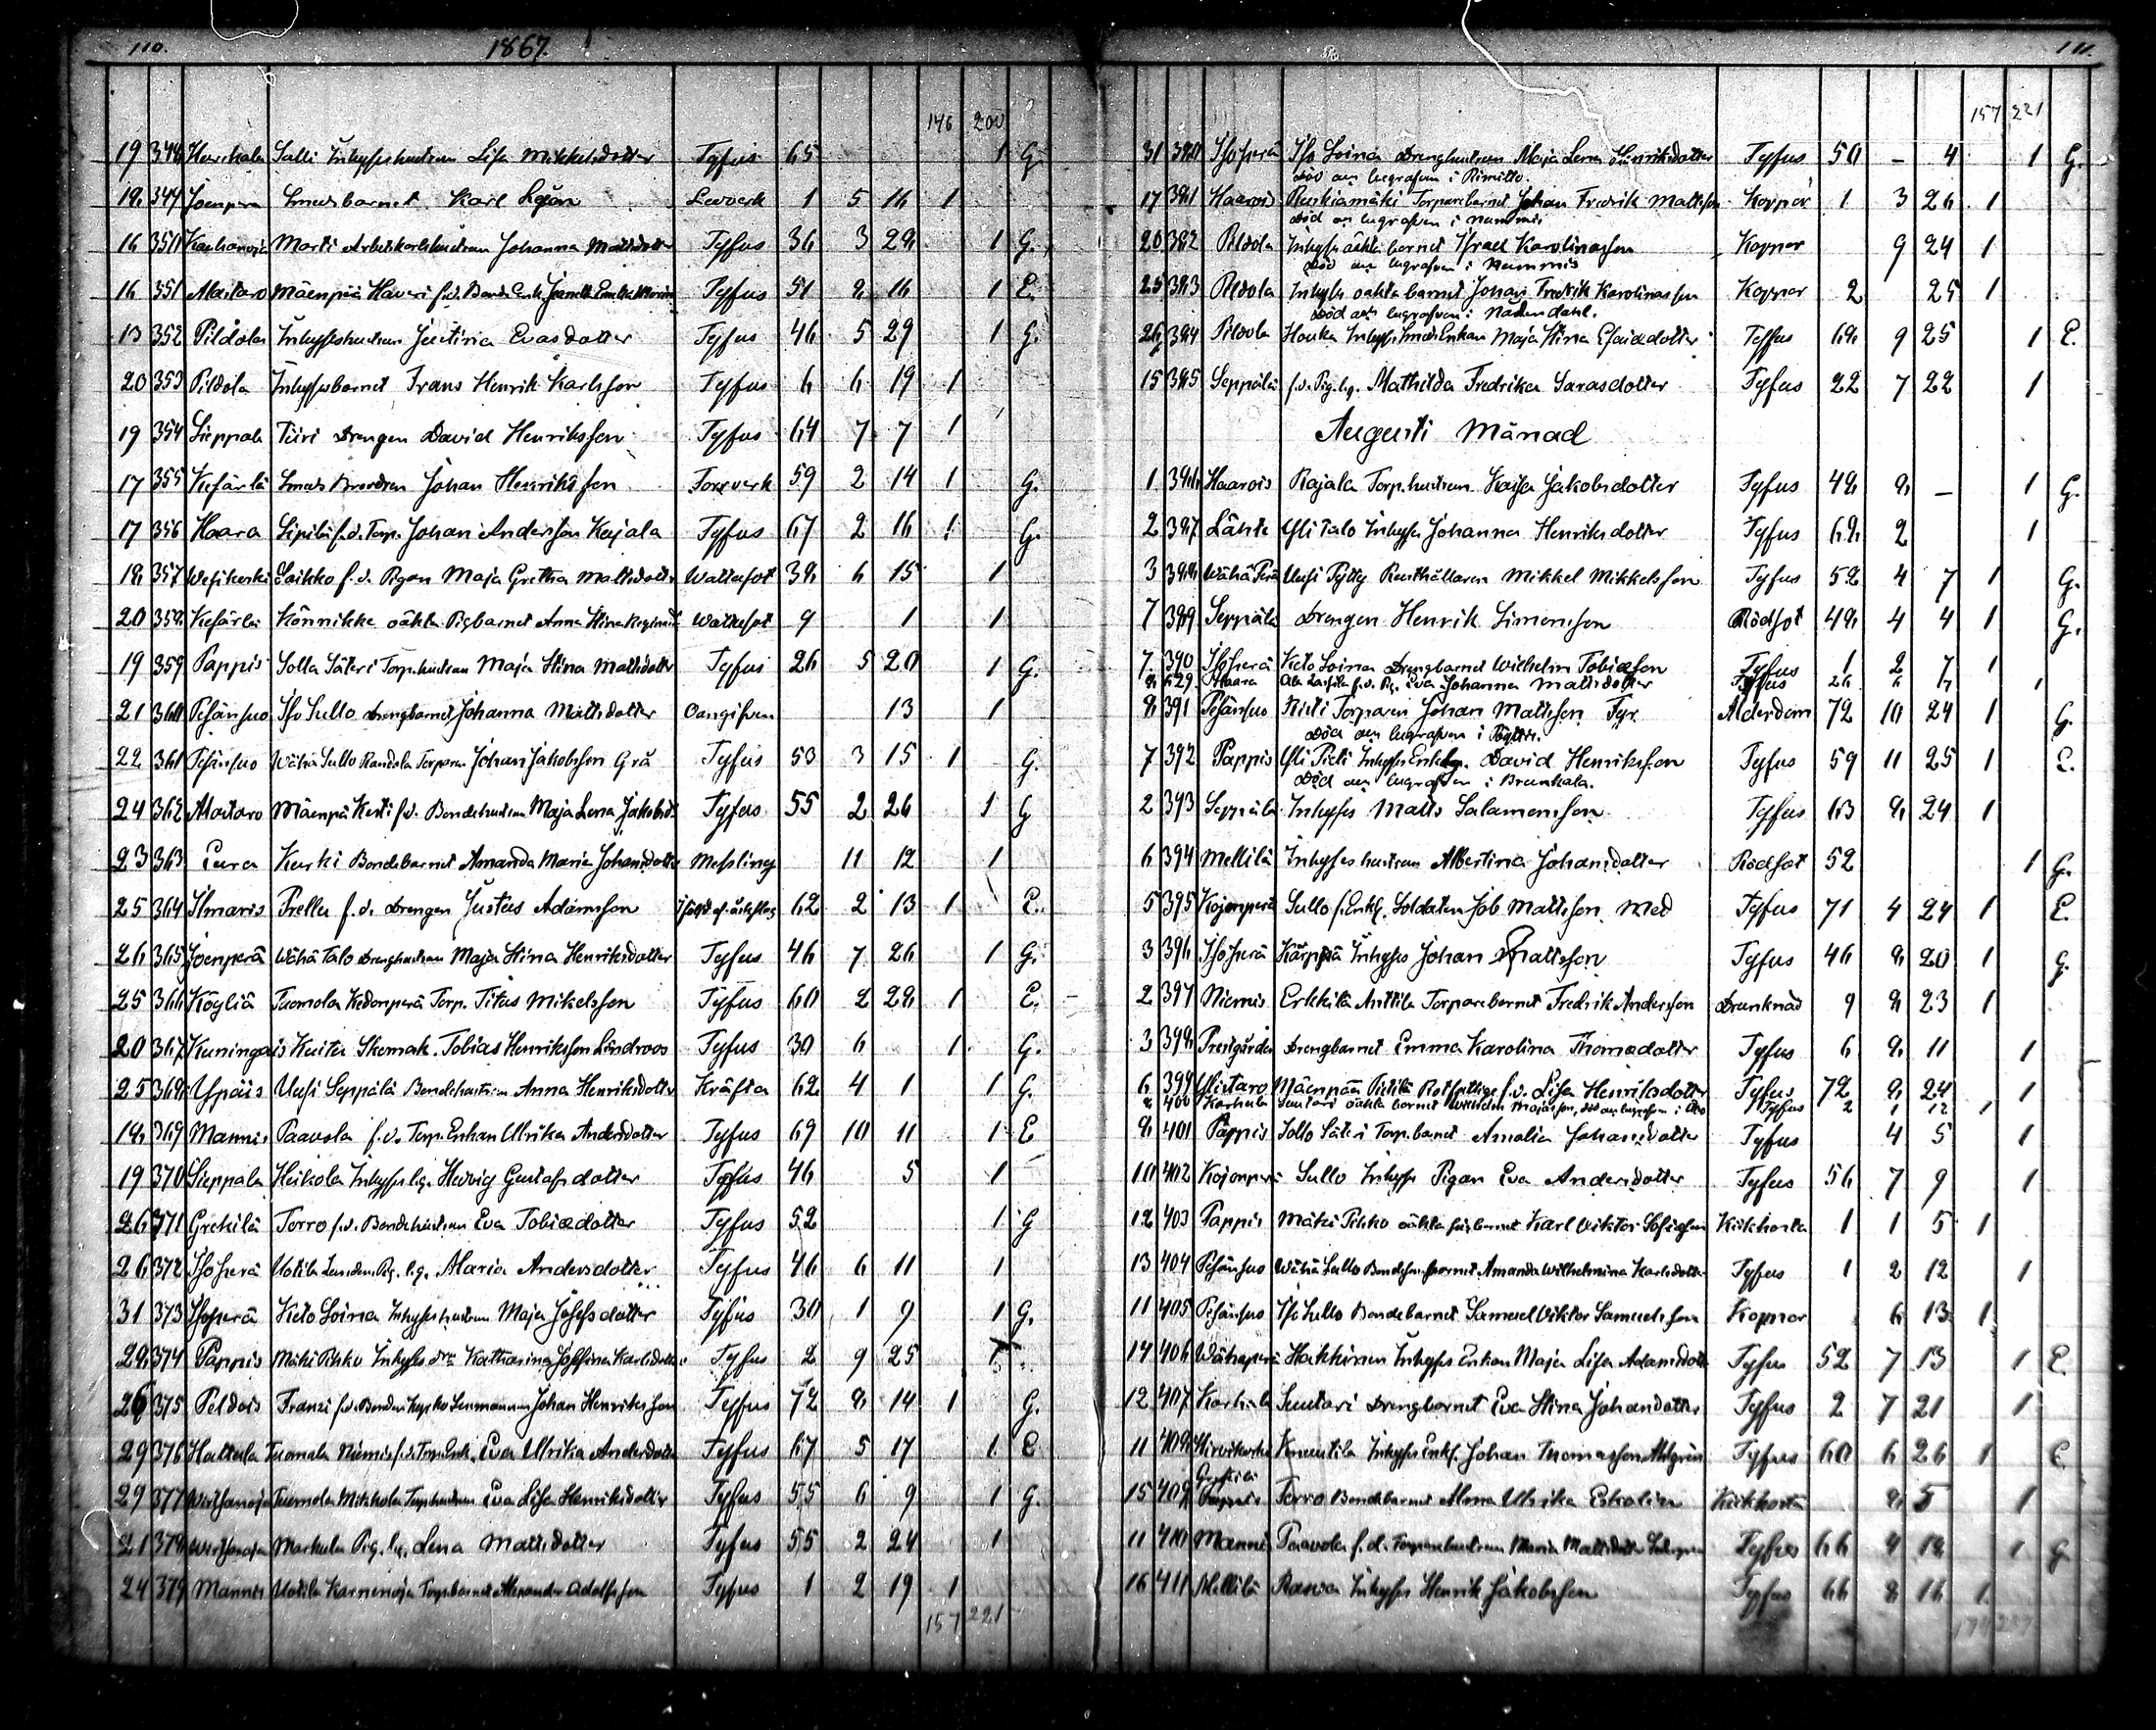 110. 1867.
146 200
19 348 Karhula Salli Inhyseshustrun Lisa Mikkelsdotter Tyfus 65 1 G.
18 349 Joenperä Smedsbarnet Karl Sjön 1 5 16 1
16 350 Kauhanoja Marti Arbetskarlshustrun Johanna Mattsdotter Tyfus 36 3 28 1 G.
16 351 Mataro Mäenpää Haveri f.d. Bonde Enk. Tyfus 51 8 16 1 E.
13 352 Pildola Inhyseshustrun Justina Evasdotter Tyfus 46 5 29 1 G.
20 353 Pildola Inhysesbarnet Frans Henrik Karlsson Tyfus 6 6 19 1
19 354 Sieppala Tiiri Drengen David Henriksson Tyfus 64 7 7 1
17 355 Kefärlä Smeds Brodren Johan Henriksson Torrverk 59 2 14 1 G.
17 356 Haara Sipilä f.d. Torp. Johan Andersson Kajala Tyfus 67 2 16 1 G.
18 357 Wesikoski Laikko f.d. Pigan Maja Gretha Mattsdotter Wattusot 38 6 15 1
20 358 Kefärlä Könnikke oäkta Pigbarnet Anna Stina Wattusot 9 1 1
19 359 Pappis Solla Säteri Torp.hustrun Maja Stina Mattsdotter Tyfus 26 5 20 1 G.
21 360 Pesänsuo Iso Sullo Drengbarnet Johanna Mattsdotter Oangifven 13 1
22 361 Pesänsuo Wähä Sullo Randala Torparen Johan Jakobsson Grå Tyfus 53 3 15 1 G.
24 362 Mataro Mäenpä Kesti f.d. Bondehustrun Maja Lena Jakobsd. Tyfus 55 2 26 1 G
23 363 Eura Kurki Bondebarnet Amanda Maria Johansdotter Messling 11 12 1
25 364 Ilmaris Prellu f.d. Drengen Justus Adamsson 62 2 13 1 E.
26 365 Joenperä Wähä Talo Drenghustrun Maja Stina Henriksdotter Tyfus 46 7 26 1 G.
25 366 Köyliä Tuomola Kedonperä Torp. Titus Mikelsson Tyfus 60 2 28 1 E.
20 367 Kuningais Kuitu Skomak. Tobias Henriksson Lindroos Tyfus 30 6 1 G.
25 368 Ypäis Uusi Seppälä Bondehustrun Anna Henriksdotter Kräfta 62 4 1 1 G.
18 369 Mannis Paavola f.d. Torp. Enkan Ulrika Andersdotter Tyfus 69 10 11 1 E
19 370 Sieppala Heikola Inhyses lig. Hedvig Gustafsdotter Tyfus 46 5 1
26 371 Grekilä Torro f.d. Bondehustrun Eva Tobiædotter Tyfus 52 1 G
26 372 Isoperä Uotila Pig. lig. Maria Andersdotter Tyfus 46 6 11 1
31 373 Isoperä Keto Soina Inhyseshustrun Maja Josefsdotter Tyfus 30 1 9 1 G.
28 374 Pappis Mäki Pikko Inhyses Katharina Josefina Karlsdotter Tyfus 2 9 25 1
26 375 Peldois Franzi f.d. Bonden Johan Henriksson Tyfus 72 8 14 1 G.
29 376 Hattula Tuomala Niemis f.d. Torp.Enk. Eva Ulrika Andersdotter Tyfus 67 5 17 1 E
29 377 Wirtsanoja Tuomola Mikkola Torp.hustrun Eva Lisa Henriksdotter Tyfus 55 6 9 1 G.
21 378 Wirtsanoja Markula Pig. lig. Lena Mattsdotter Tyfus 55 2 24 1
24 379 Mannis Uotila Karnenoja Torp.barnet Alexander Adolfsson Tyfus 1 2 19 1
157 221
111.
157 221
31 380 Isoperä Iso Soina Drenghustrun Maja Lena Henriksdotter Tyfus 50 – 4 1 G.
Död och begrafven i Rimitto.
17 381 Haarois Ruskiamäki Torparebarnet Johan Fredrik Mattsson Koppor 1 3 26 1
Död och begrafven i Nummis
20 382 Pildola Inhyses oäkta barnet Israel Karolinasson Koppor 9 24 1
Död och begrafven i Nummis
25 383 Pildola Inhyses oäkta barnet Johan Fredrik Karolinasson Koppor 2 25 1
Död och begrafven i Nådendahl.
26 384 Pildola Houka Inhyses Smeds Enkan Maja Stina Esaiædotter Tyfus 68 9 25 1 E.
15 385 Seppälä f.d. Pig. lig. Mathilda Fredrika Sarasdotter Tyfus 22 7 22 1
Augusti Månad
1 386 Haarois Rajala Torp.hustrun Kaisa Jakobsdotter Tyfus 48 8 – 1 G.
2 387 Lähte Yli Talo Inhyses Johanna Henriksdotter Tyfus 68 2 1
3 388 Wähä Perä Uusi Pytty Rusthållaren Mikkel Mikkelsson Tyfus 52 4 7 1 G.
7 389 Seppälä Drengen Henrik Simonsson Rödsot 48 4 4 1 G.
7 390 Isoperä Keto Soina Drengbarnet Wilhelm Tobiæsson Tyfus 1 2 7 1
Haara f.d. Pig. Eva Johanna Mattsdotter Tyfus 1
8 391 Pesänsuo Risti Torparen Johan Mattsson Fyr Ålderdom 72 10 24 1 G.
Död och begrafven i Pöytis.
7 392 Pappis Yli Pietti Inhyses Enklig. David Henriksson Tyfus 59 11 25 1 E.
Död och begrafven i Brunkala.
2 393 Seppälä Inhyses Matts Salamonsson Tyfus 63 8 24 1
6 394 Mellilä Inhyseshustrun Albertina Johansdotter Rödsot 52 1 G.
5 395 Kojonperä Sullo f. Enkl. Soldaten Job Mattsson Med Tyfus 71 4 24 1 E.
3 396 Isoperä Kärppä Inhyses Johan Mattsson Tyfus 46 8 20 1 G.
2 397 Niemis Erkkilä Anttila Torparebarnet Fredrik Andersson Drunknad 9 8 23 1
3 398 Prestgården Drengbarnet Emma Karolina Thomædotter Tyfus 6 8 11 1
6 399 Ylistaro Mäenpää Pietilä Rotfattiga f.d. Lisa Henriksdotter Tyfus 72 8 24 1
8 400 Karhula Suutari oäkta barnet Wilhelm Majasson, död och begrafven i Åbo Tyfus 2 1 12 1
8 401 Pappis Sollo Säteri Torp.barnet Amalia Johansdotter Tyfus 4 5 1
10 402 Kojonperä Sullo Inhyses Pigan Eva Andersdotter Tyfus 56 7 9 1
12 403 Pappis Mäki Pikko oäkta barnet Karl Viktor Sofiasson Kikhosta 1 1 5 1
13 404 Pesänsuo Wähä Sullo Amanda Wilhelmina Karlsdotter Tyfus 1 2 12 1
11 405 Pesänsuo Iso Sullo Bondebarnet Samuel Viktor Samuelsson Koppor 6 13 1
14 406 Wähäperä Hakkinen Inhyses Enkan Maja Lisa Adamsdotter Tyfus 52 7 13 1 E.
12 407 Karhula Suutari Drengbarnet Eva Stina Johansdotter Tyfus 2 7 21 1
11 408 Hirvikoski Knuutila Inhyses Enkl. Johan Thomasson Ahlgren Tyfus 60 6 26 1 E
15 409 Grekilä Torro Bondebarnet Alma Ulrika Kikhosta 8 5 1
11 410 Mannis Paavola f.d. Torparehustrun Maria Mattsdotter Tyfus 66 4 18 1 G
16 411 Mellilä Inhyses Henrik Jakobsson Tyfus 66 8 16 1